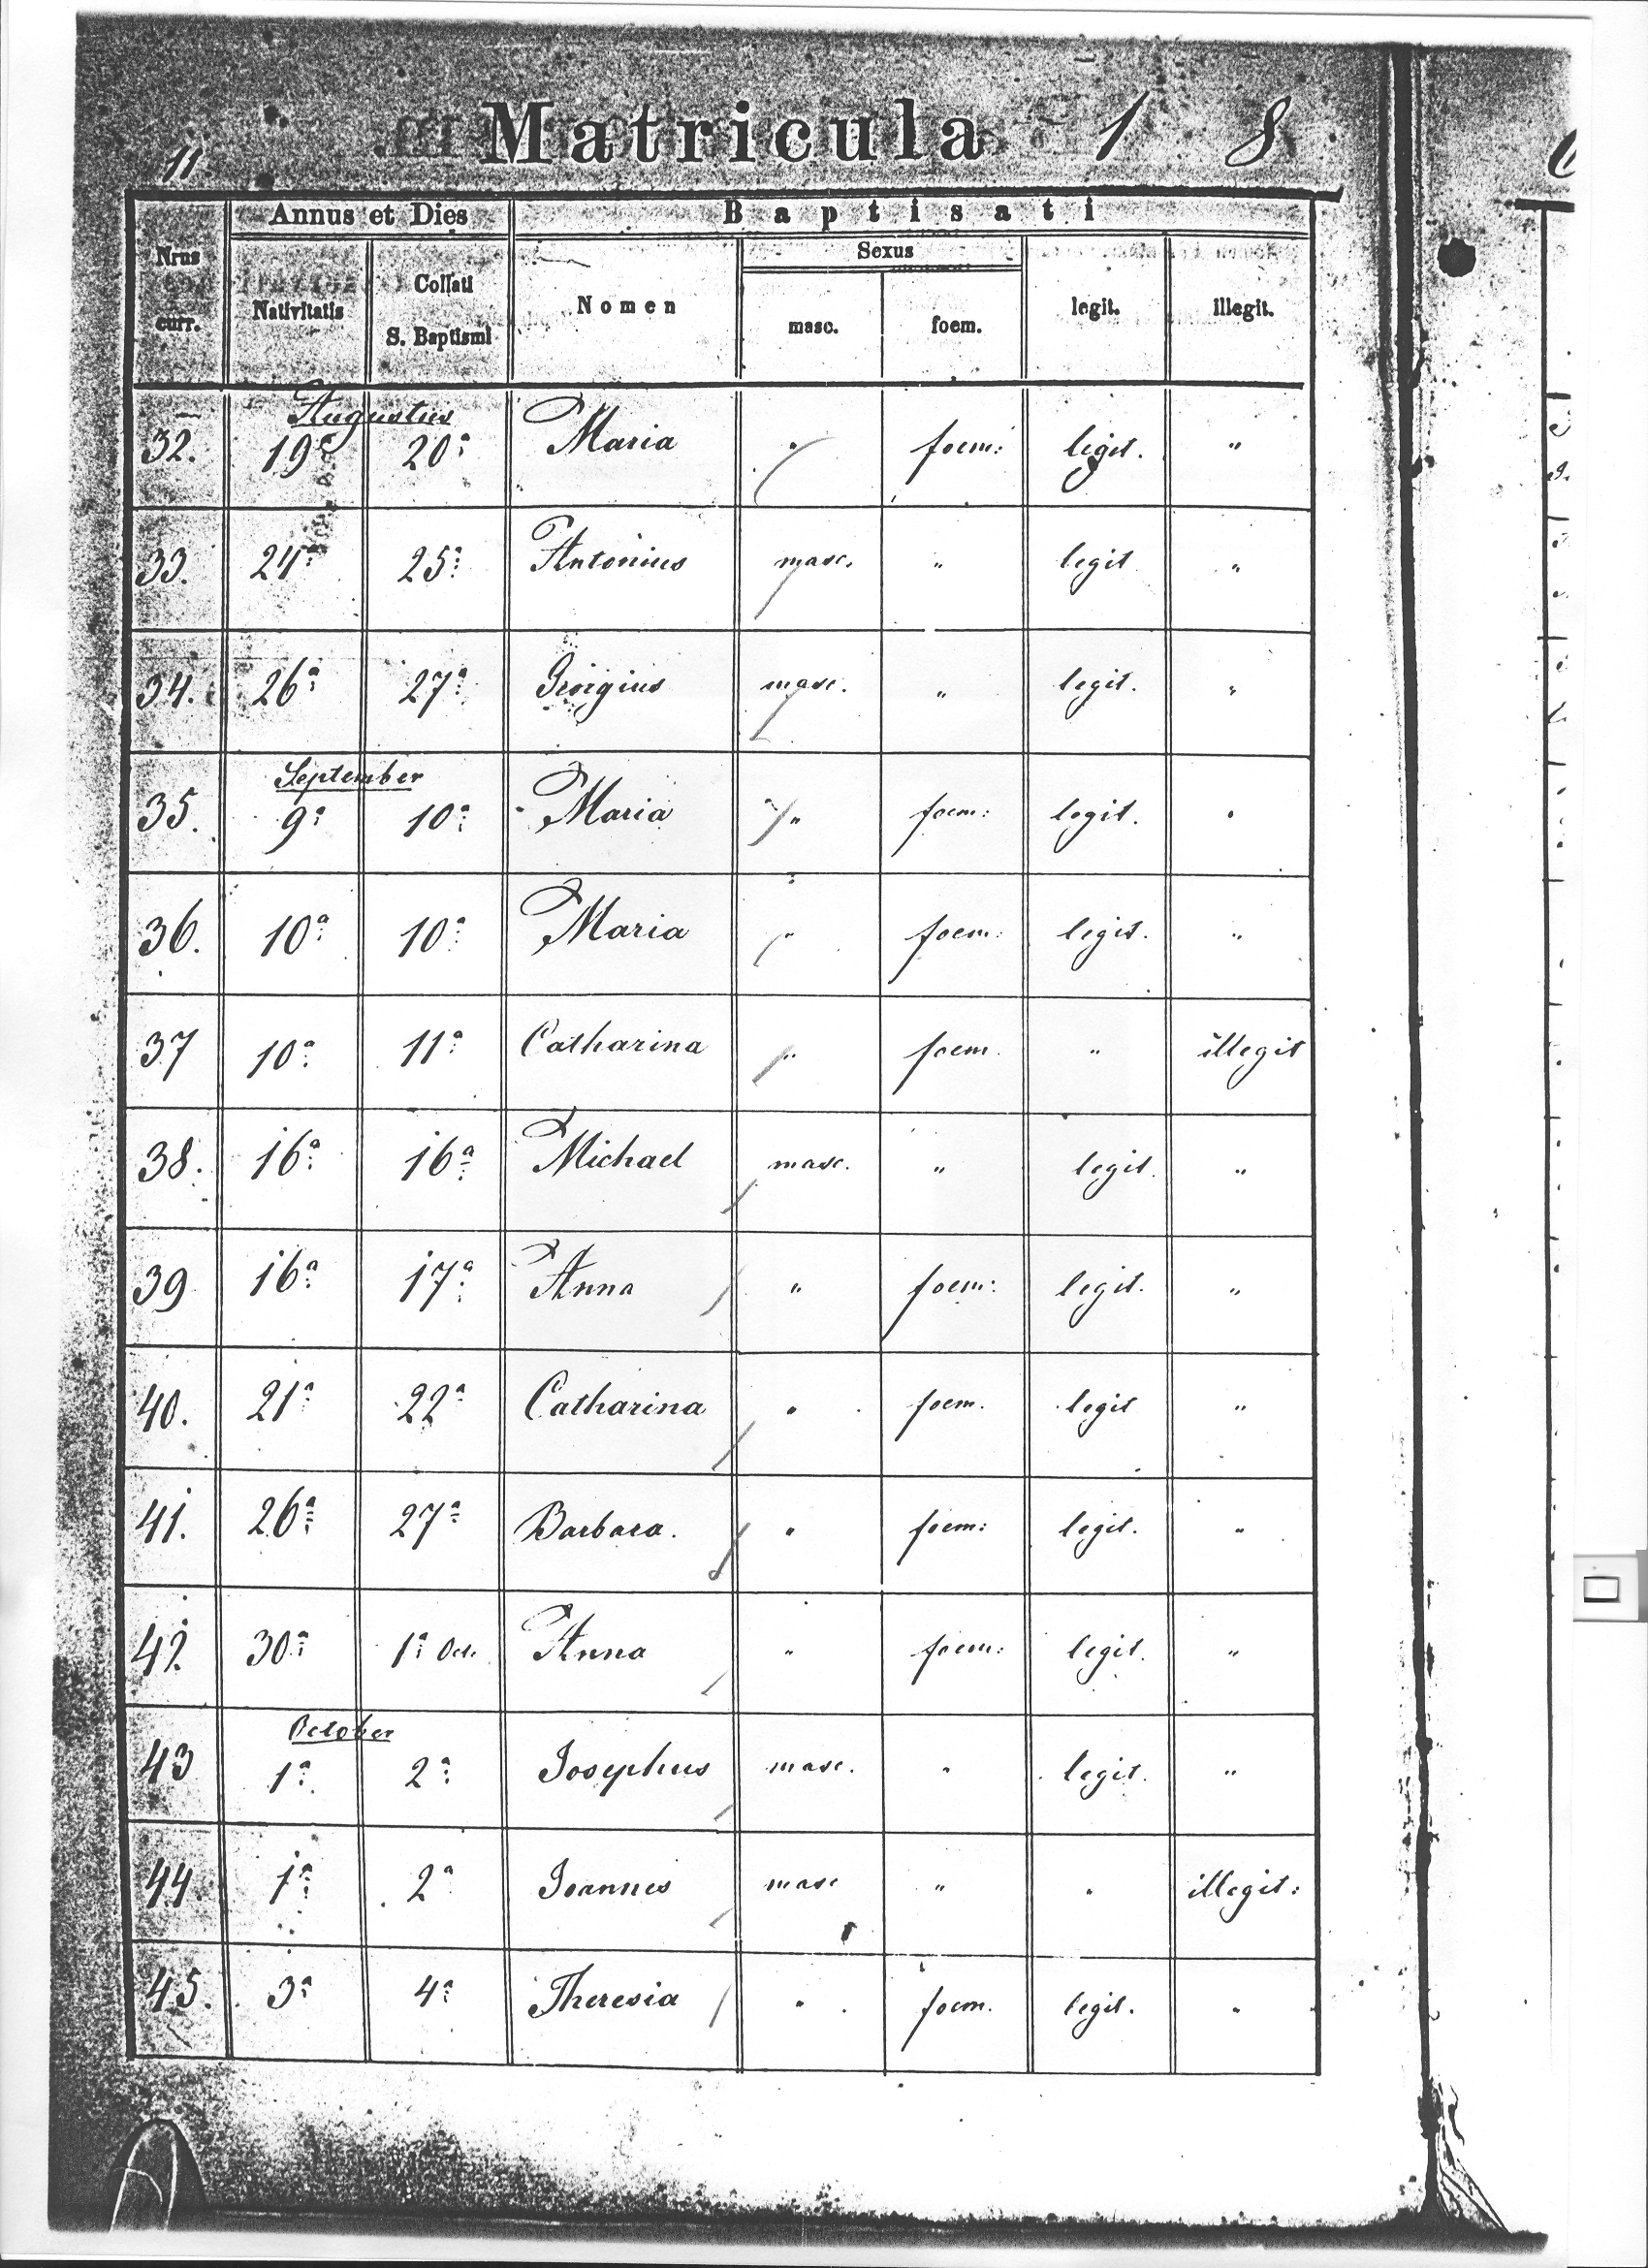 11
Matricula 1 8
Annus et Dies
Baptisati
Nrus
curr.
Nativitatis
Collati
S. Baptismi
Nomen
Sexus
masc.
foem.
legit.
illegit.
Augustus
32. 19ª 20ª Maria " foem: legit. "
33. 24ª 25ª Antonius masc. " legit "
34. 26ª 27ª Georgius masc. " legit. "
September
35. 9ª 10ª Maria " foem: legit. "
36. 10ª 10ª Maria " foem: legit. "
37 10ª 11ª Catharina " foem. " illegit
38. 16ª 16ª Michael masc. " legit. "
39 16ª 17ª Anna " foem: legit. "
40. 21ª 22ª Catharina " foem. legit "
41. 26ª 27ª Barbara. " foem: legit. "
42. 30ª 1ª Oct. Anna " foem: legit. "
October
43 1ª 2ª Josephus masc. " legit. "
44 1ª 2ª Joannes masc " " illegit:
45. 3ª 4ª Theresia " foem. legit. "